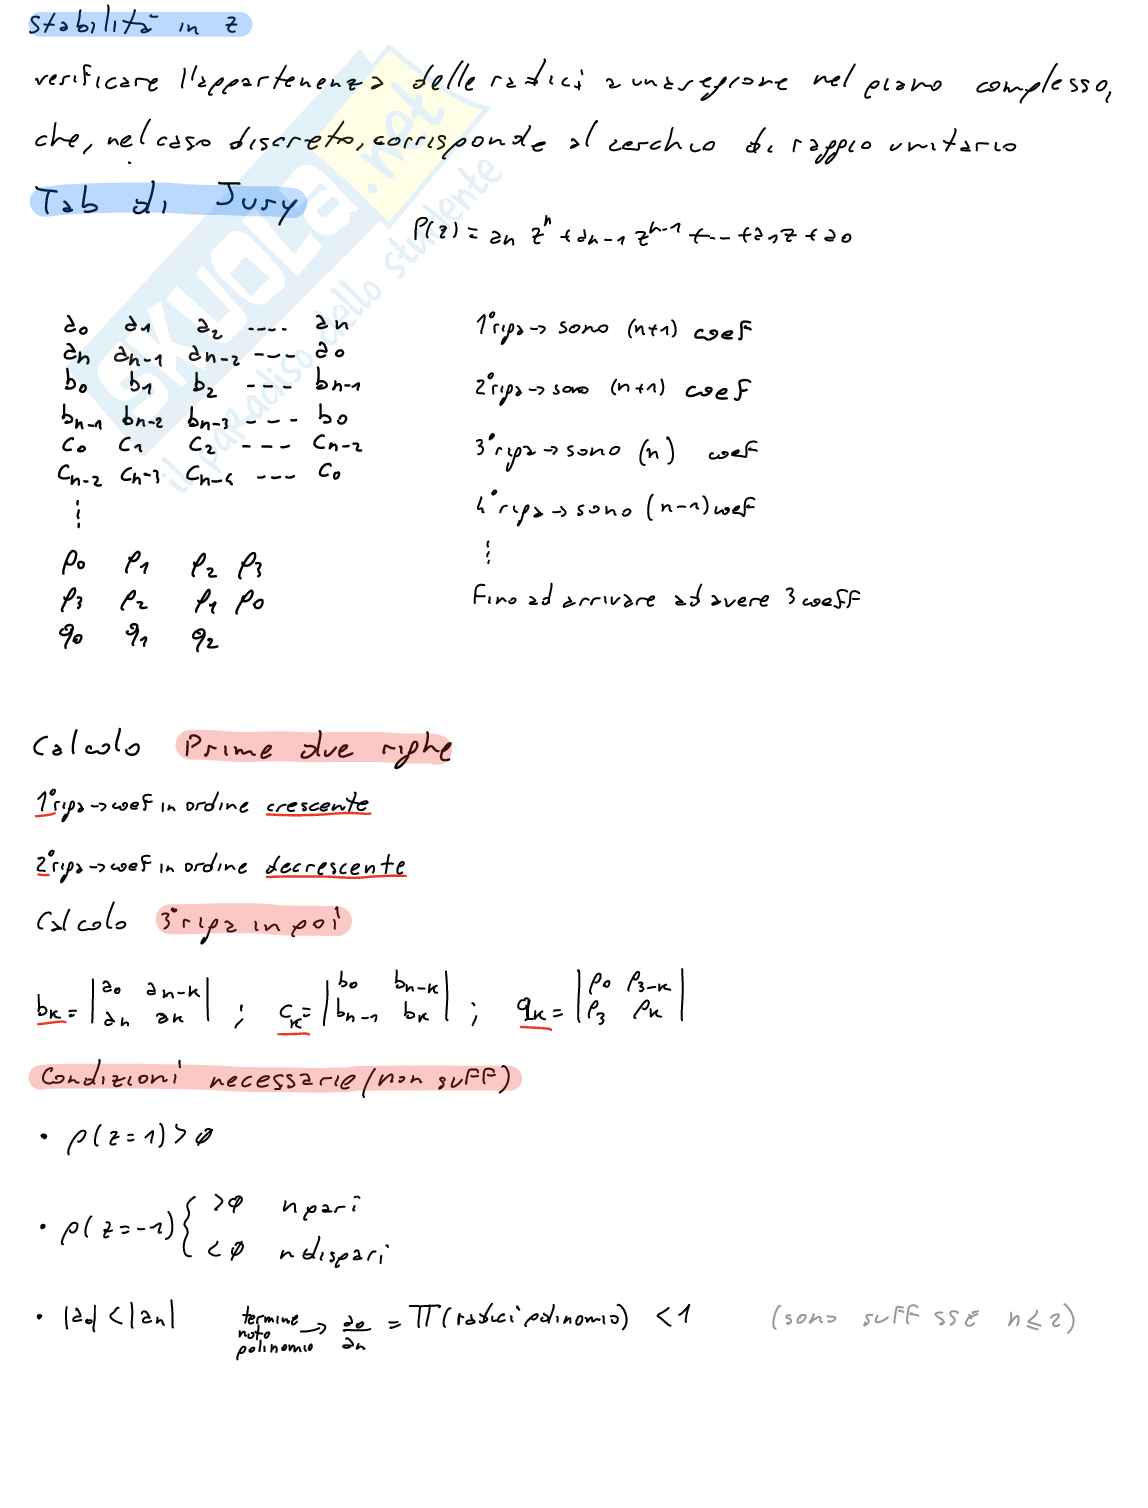 Stabilità in z
verificare l'appartenenza delle radici a una regione nel piano complesso,
che, nel caso discreto, corrisponde al cerchio di raggio unitario
Tab di Jury
P(z) = an z^n + an-1 z^n-1 + -- + a1z + a0
a0 a1 a2 ---- an
an an-1 an-2 --- a0
b0 b1 b2 --- bn-1
bn-1 bn-2 bn-3 --- b0
c0 c1 c2 --- cn-2
cn-2 cn-3 cn-4 --- c0
⋮
p0 p1 p2 p3
p3 p2 p1 p0
q0 q1 q2
1° riga → sono (n+1) coef
2° riga → sono (n+1) coef
3° riga → sono (n) coef
4° riga → sono (n-1) coef
⋮
Fino ad arrivare ad avere 3 coeff
Calcolo Prime due righe
1° riga → coef in ordine crescente
2° riga → coef in ordine decrescente
Calcolo 3° riga in poi
bk = |a0 an-k| ; ck = |b0 bn-k| ; qk = |p0 p3-k|
|an ak| |bn-1 bk| |p3 pk|
Condizioni necessarie (non suff)
• p(z=1) > 0
• p(z=-1) { >0 n pari
<0 n dispari
• |a0| < |an| termine noto polinomio → a0/an = Π(radici polinomio) < 1 (sono suff sse n ≤ 2)
SKUOLA.net
il paradiso dello studente